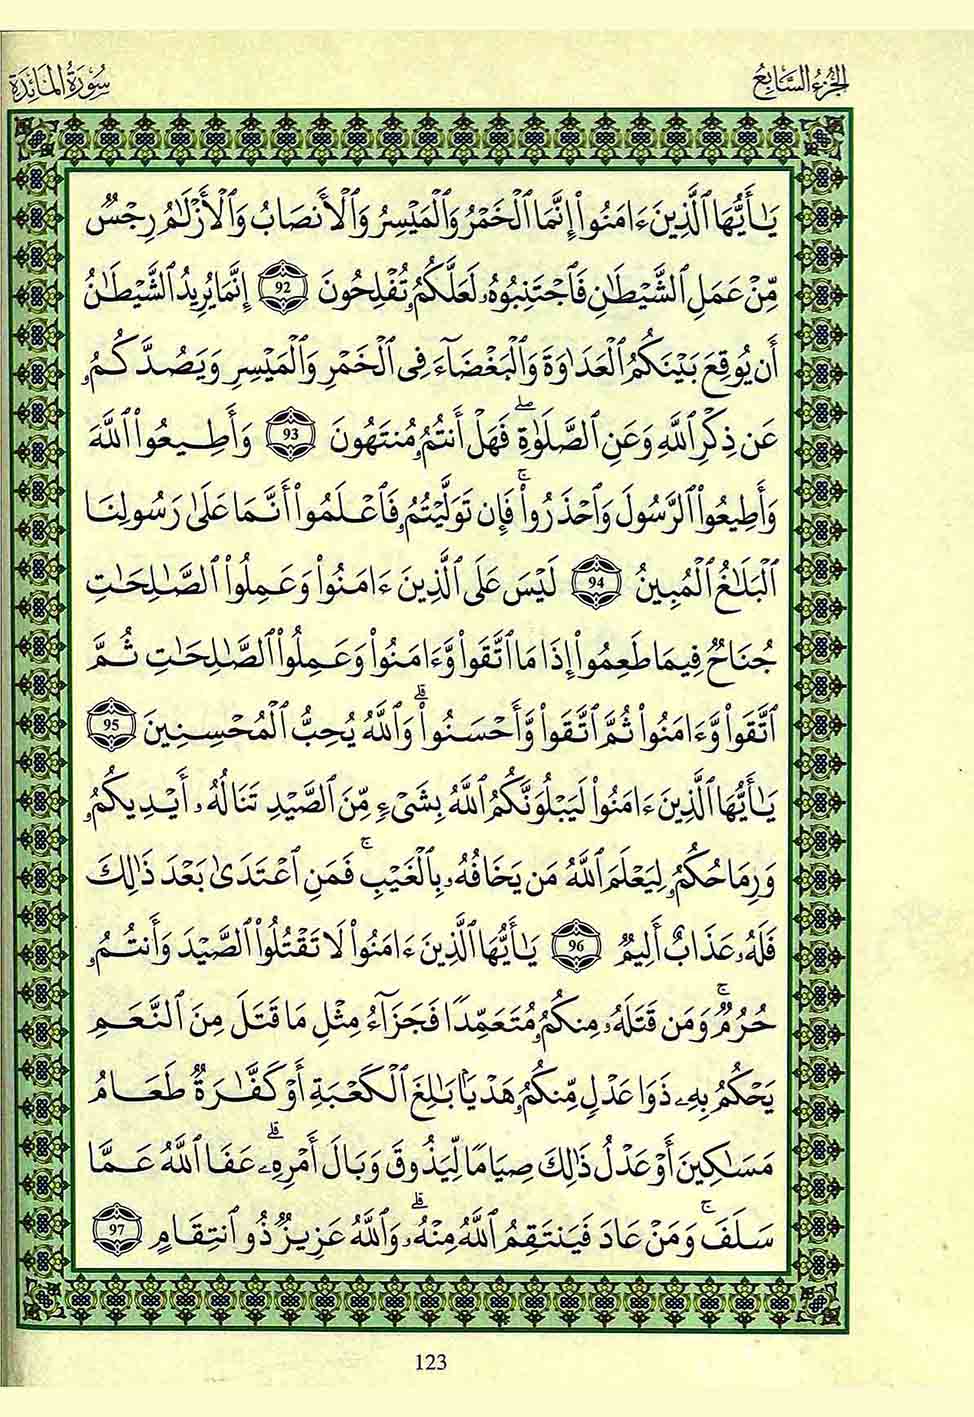 الجزء السابع
سورة المائدة
يَٰٓأَيُّهَا ٱلَّذِينَ ءَامَنُوٓا۟ إِنَّمَا ٱلْخَمْرُ وَٱلْمَيْسِرُ وَٱلْأَنصَابُ وَٱلْأَزْلَٰمُ رِجْسٌ
مِّنْ عَمَلِ ٱلشَّيْطَٰنِ فَٱجْتَنِبُوهُۥ لَعَلَّكُمُۥ تُفْلِحُونَ 92 إِنَّمَا يُرِيدُ ٱلشَّيْطَٰنُ
أَن يُوقِعَ بَيْنَكُمُ ٱلْعَدَٰوَةَ وَٱلْبَغْضَآءَ فِى ٱلْخَمْرِ وَٱلْمَيْسِرِ وَيَصُدَّكُمُۥ
عَن ذِكْرِ ٱللَّهِ وَعَنِ ٱلصَّلَوٰةِ ۖ فَهَلْ أَنتُمُۥ مُنتَهُونَ 93 وَأَطِيعُوا۟ ٱللَّهَ
وَأَطِيعُوا۟ ٱلرَّسُولَ وَٱحْذَرُوا۟ ۚ فَإِن تَوَلَّيْتُمُۥ فَٱعْلَمُوٓا۟ أَنَّمَا عَلَىٰ رَسُولِنَا
ٱلْبَلَٰغُ ٱلْمُبِينُ 94 لَيْسَ عَلَى ٱلَّذِينَ ءَامَنُوا۟ وَعَمِلُوا۟ ٱلصَّٰلِحَٰتِ
جُنَاحٌ فِيمَا طَعِمُوٓا۟ إِذَا مَا ٱتَّقَوا۟ وَّءَامَنُوا۟ وَعَمِلُوا۟ ٱلصَّٰلِحَٰتِ ثُمَّ
ٱتَّقَوا۟ وَّءَامَنُوا۟ ثُمَّ ٱتَّقَوا۟ وَّأَحْسَنُوا۟ ۗ وَٱللَّهُ يُحِبُّ ٱلْمُحْسِنِينَ 95
يَٰٓأَيُّهَا ٱلَّذِينَ ءَامَنُوا۟ لَيَبْلُوَنَّكُمُ ٱللَّهُ بِشَىْءٍ مِّنَ ٱلصَّيْدِ تَنَالُهُۥٓ أَيْدِيكُمُۥ
وَرِمَاحُكُمُۥ لِيَعْلَمَ ٱللَّهُ مَن يَخَافُهُۥ بِٱلْغَيْبِ ۚ فَمَنِ ٱعْتَدَىٰ بَعْدَ ذَٰلِكَ
فَلَهُۥ عَذَابٌ أَلِيمٌ 96 يَٰٓأَيُّهَا ٱلَّذِينَ ءَامَنُوا۟ لَا تَقْتُلُوا۟ ٱلصَّيْدَ وَأَنتُمُۥ
حُرُمٌ ۚ وَمَن قَتَلَهُۥ مِنكُمُۥ مُتَعَمِّدًا فَجَزَآءُ مِثْلِ مَا قَتَلَ مِنَ ٱلنَّعَمِ
يَحْكُمُ بِهِۦ ذَوَا عَدْلٍ مِّنكُمُۥ هَدْيًۢا بَٰلِغَ ٱلْكَعْبَةِ أَوْ كَفَّٰرَةٌ طَعَامُ
مَسَٰكِينَ أَوْ عَدْلُ ذَٰلِكَ صِيَامًا لِّيَذُوقَ وَبَالَ أَمْرِهِۦ ۗ عَفَا ٱللَّهُ عَمَّا
سَلَفَ ۚ وَمَنْ عَادَ فَيَنتَقِمُ ٱللَّهُ مِنْهُۥ ۗ وَٱللَّهُ عَزِيزٌ ذُو ٱنتِقَامٍ 97
123